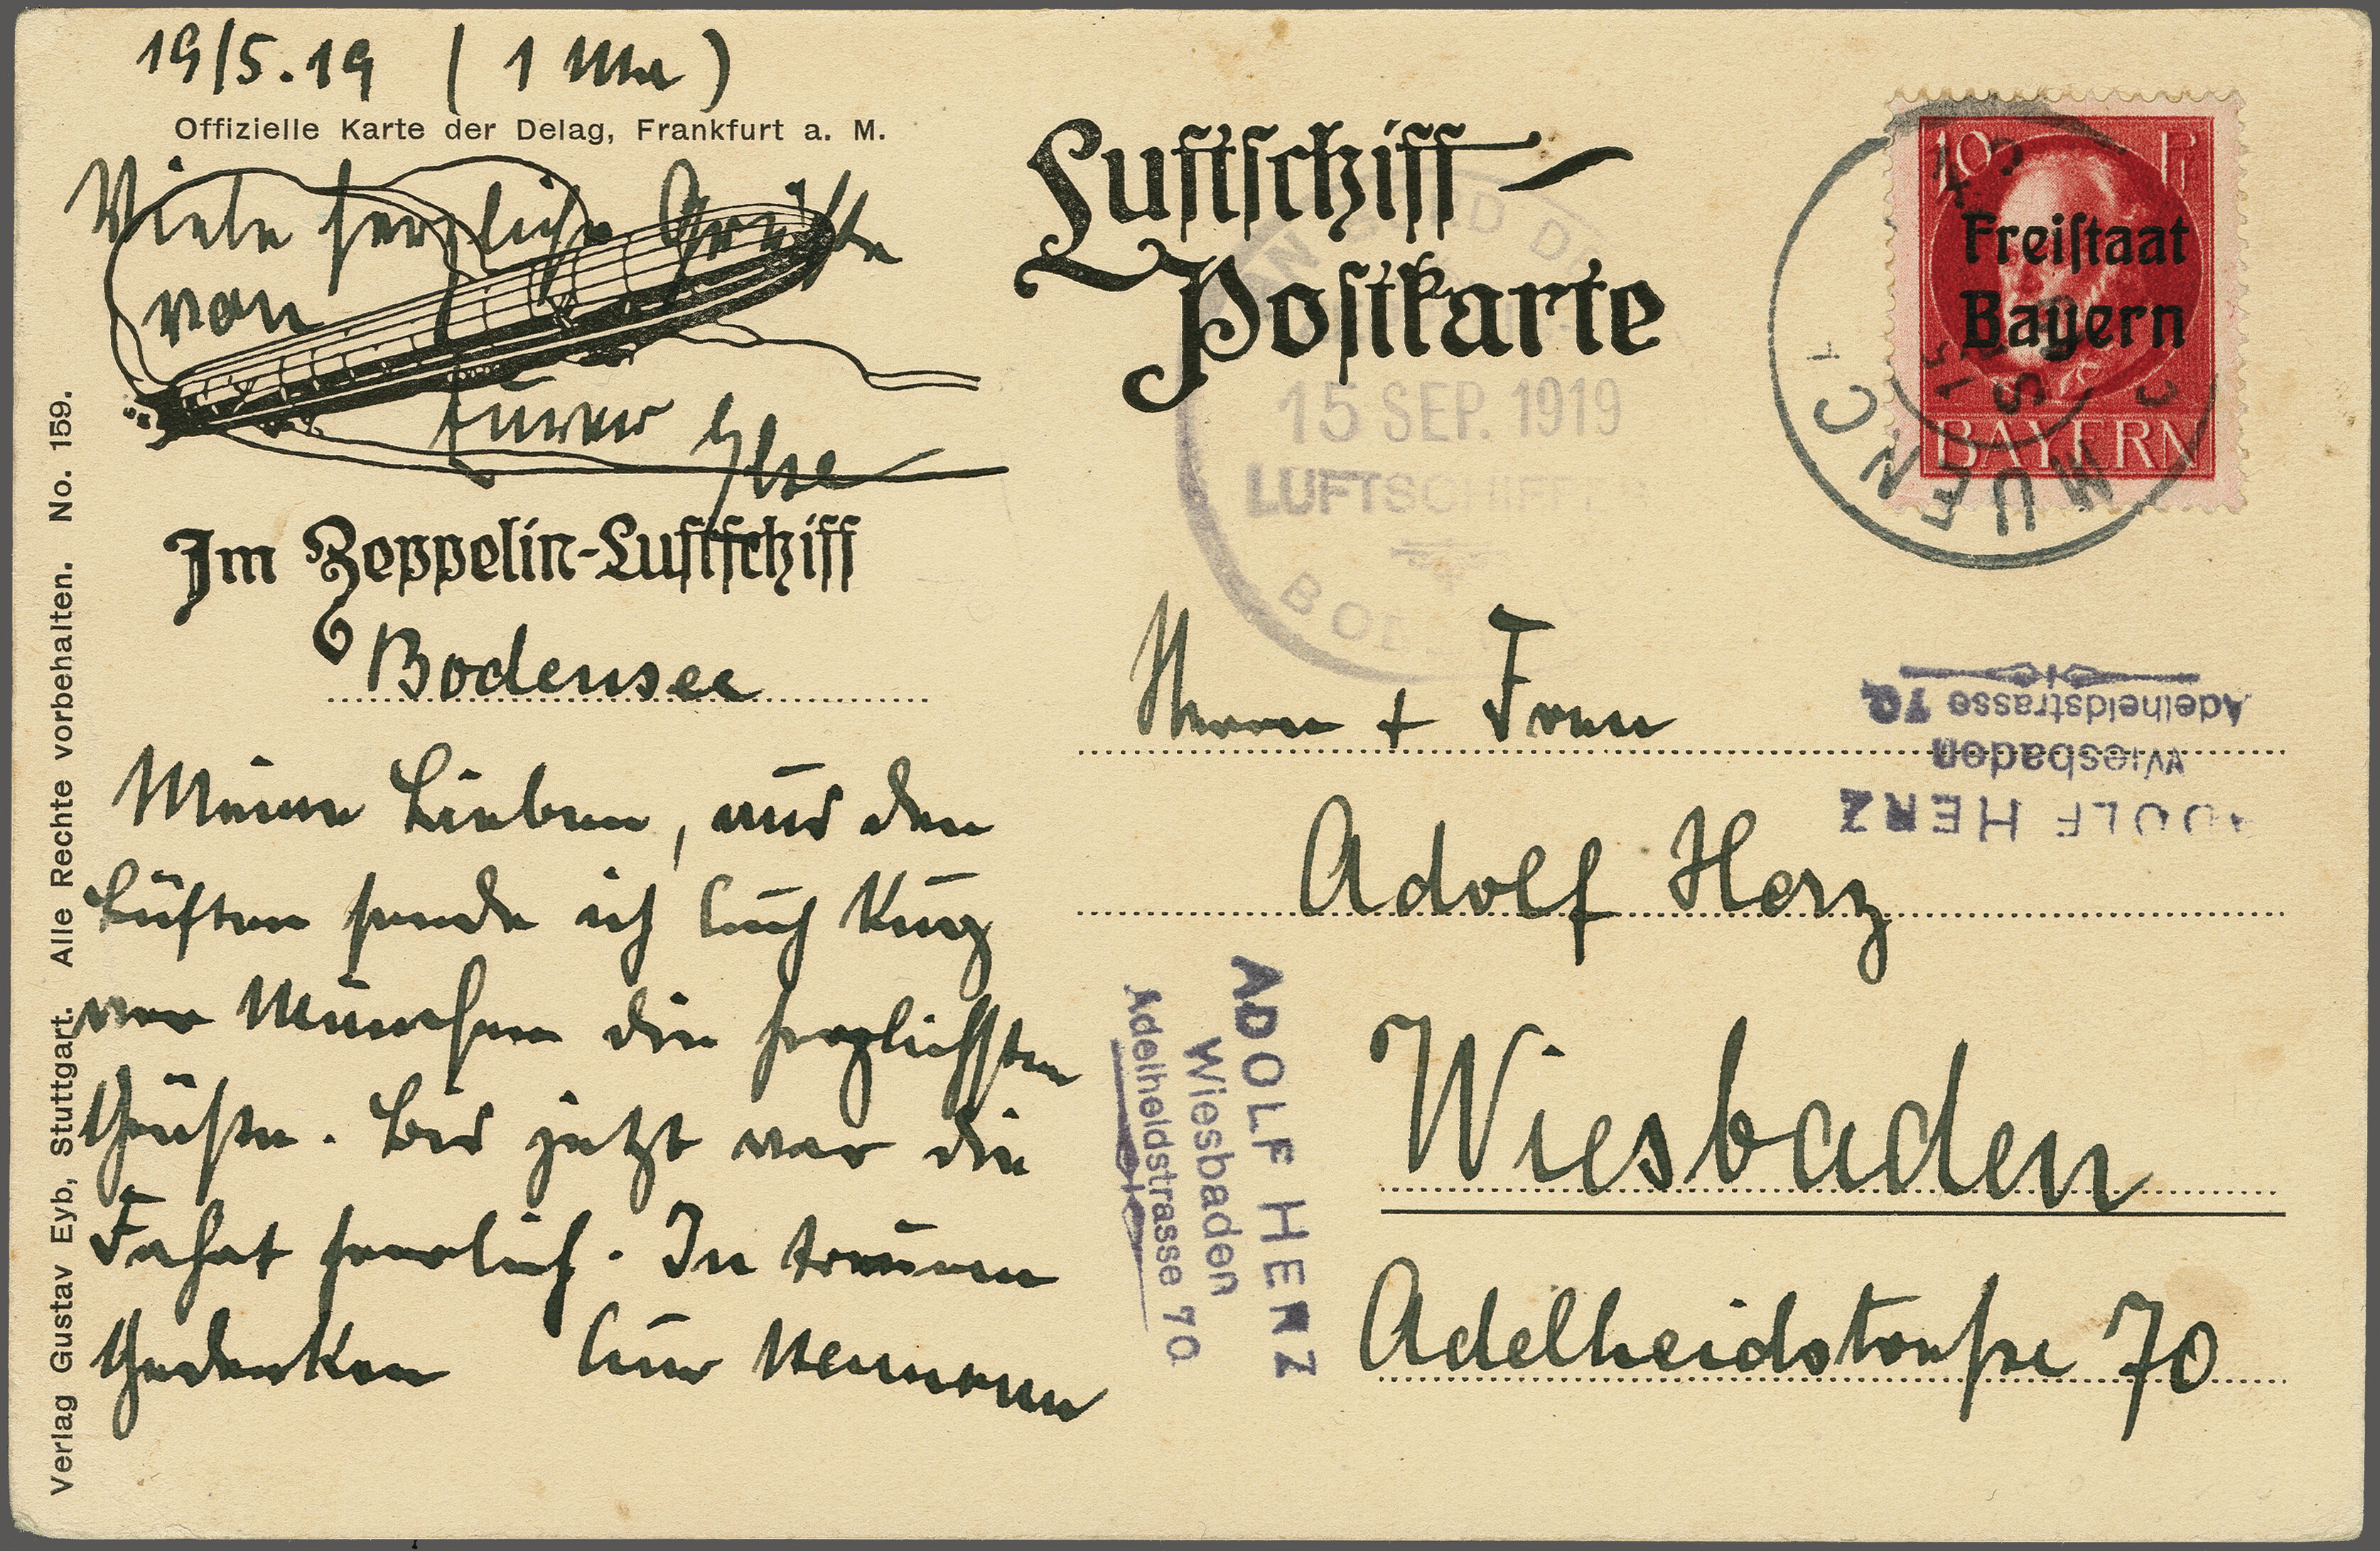 19/5.19 (1 Uhr)
Offizielle Karte der Delag, Frankfurt a. M.
Viele herzliche Grüße
von
Eurer Ilse
Im Zeppelin-Luftschiff
Bodensee
Meine Lieben, aus den
Lüften sende ich Euch kurz
vor München die herzlichsten
Grüße. Bis jetzt war die
Fahrt herrlich. In treuem
Gedenken Euer Hermann
Verlag Gustav Eyb, Stuttgart. Alle Rechte vorbehalten. No. 159.
Luftschiff-
Postkarte
AN BORD
15 SEP. 1919
LUFTSCHIFFES
BODENSEE
10 Pf
Freistaat
Bayern
BAYERN
MUENCH
Herrn + Frau
Adolf Herz
Wiesbaden
Adelheidstraße 70
ADOLF HERZ
Wiesbaden
Adelheidstrasse 70
ADOLF HERZ
Wiesbaden
Adelheidstrasse 70